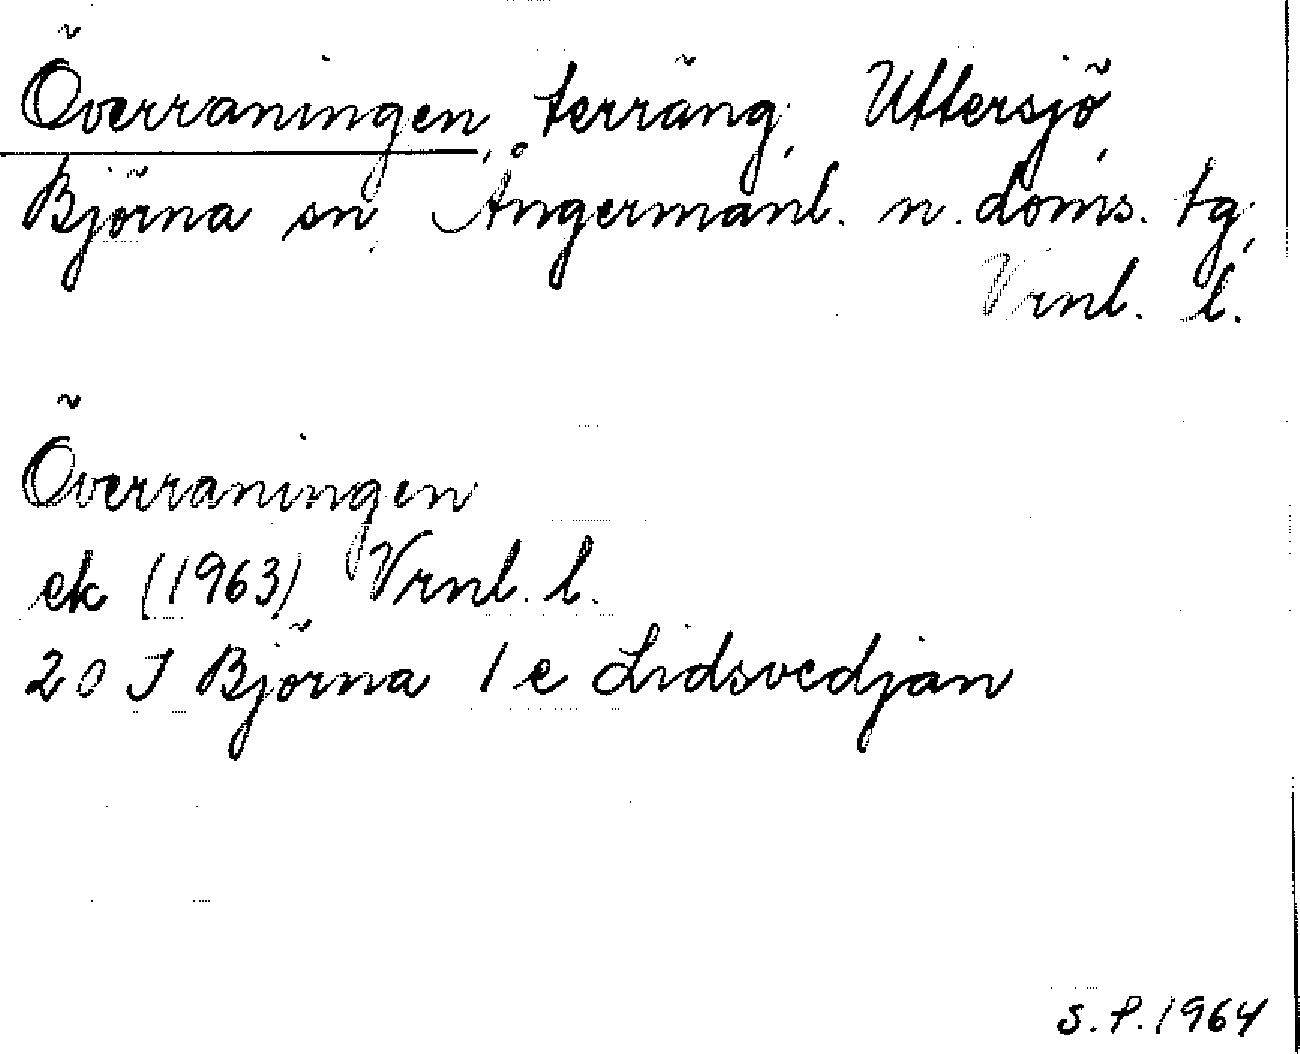 Överraningen, terräng, Uttersjö,
Björna sn, Ångermanl. n. doms. tg,
Vrnl. l.
Överraningen
ek (1963) Vrnl. l.
20 J Björna 1 e Lidsvedjan
S.P. 1964